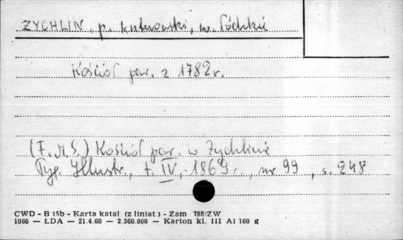 ZYCHLIN, p. kutnowski, w. łódzkie
Kościół par. z 1782 r.
(F. M. S.) Kościół par. w Zychlinie
Tyg. Illustr., t. IV, 1869 r., nr 99, s. 248
CWD - B 15b - Karta katal (z liniat.) - Zam 788/ZW
1060 — ŁDA — 21.4.60 — 2.360.000 — Karton kl. III A1 160 g